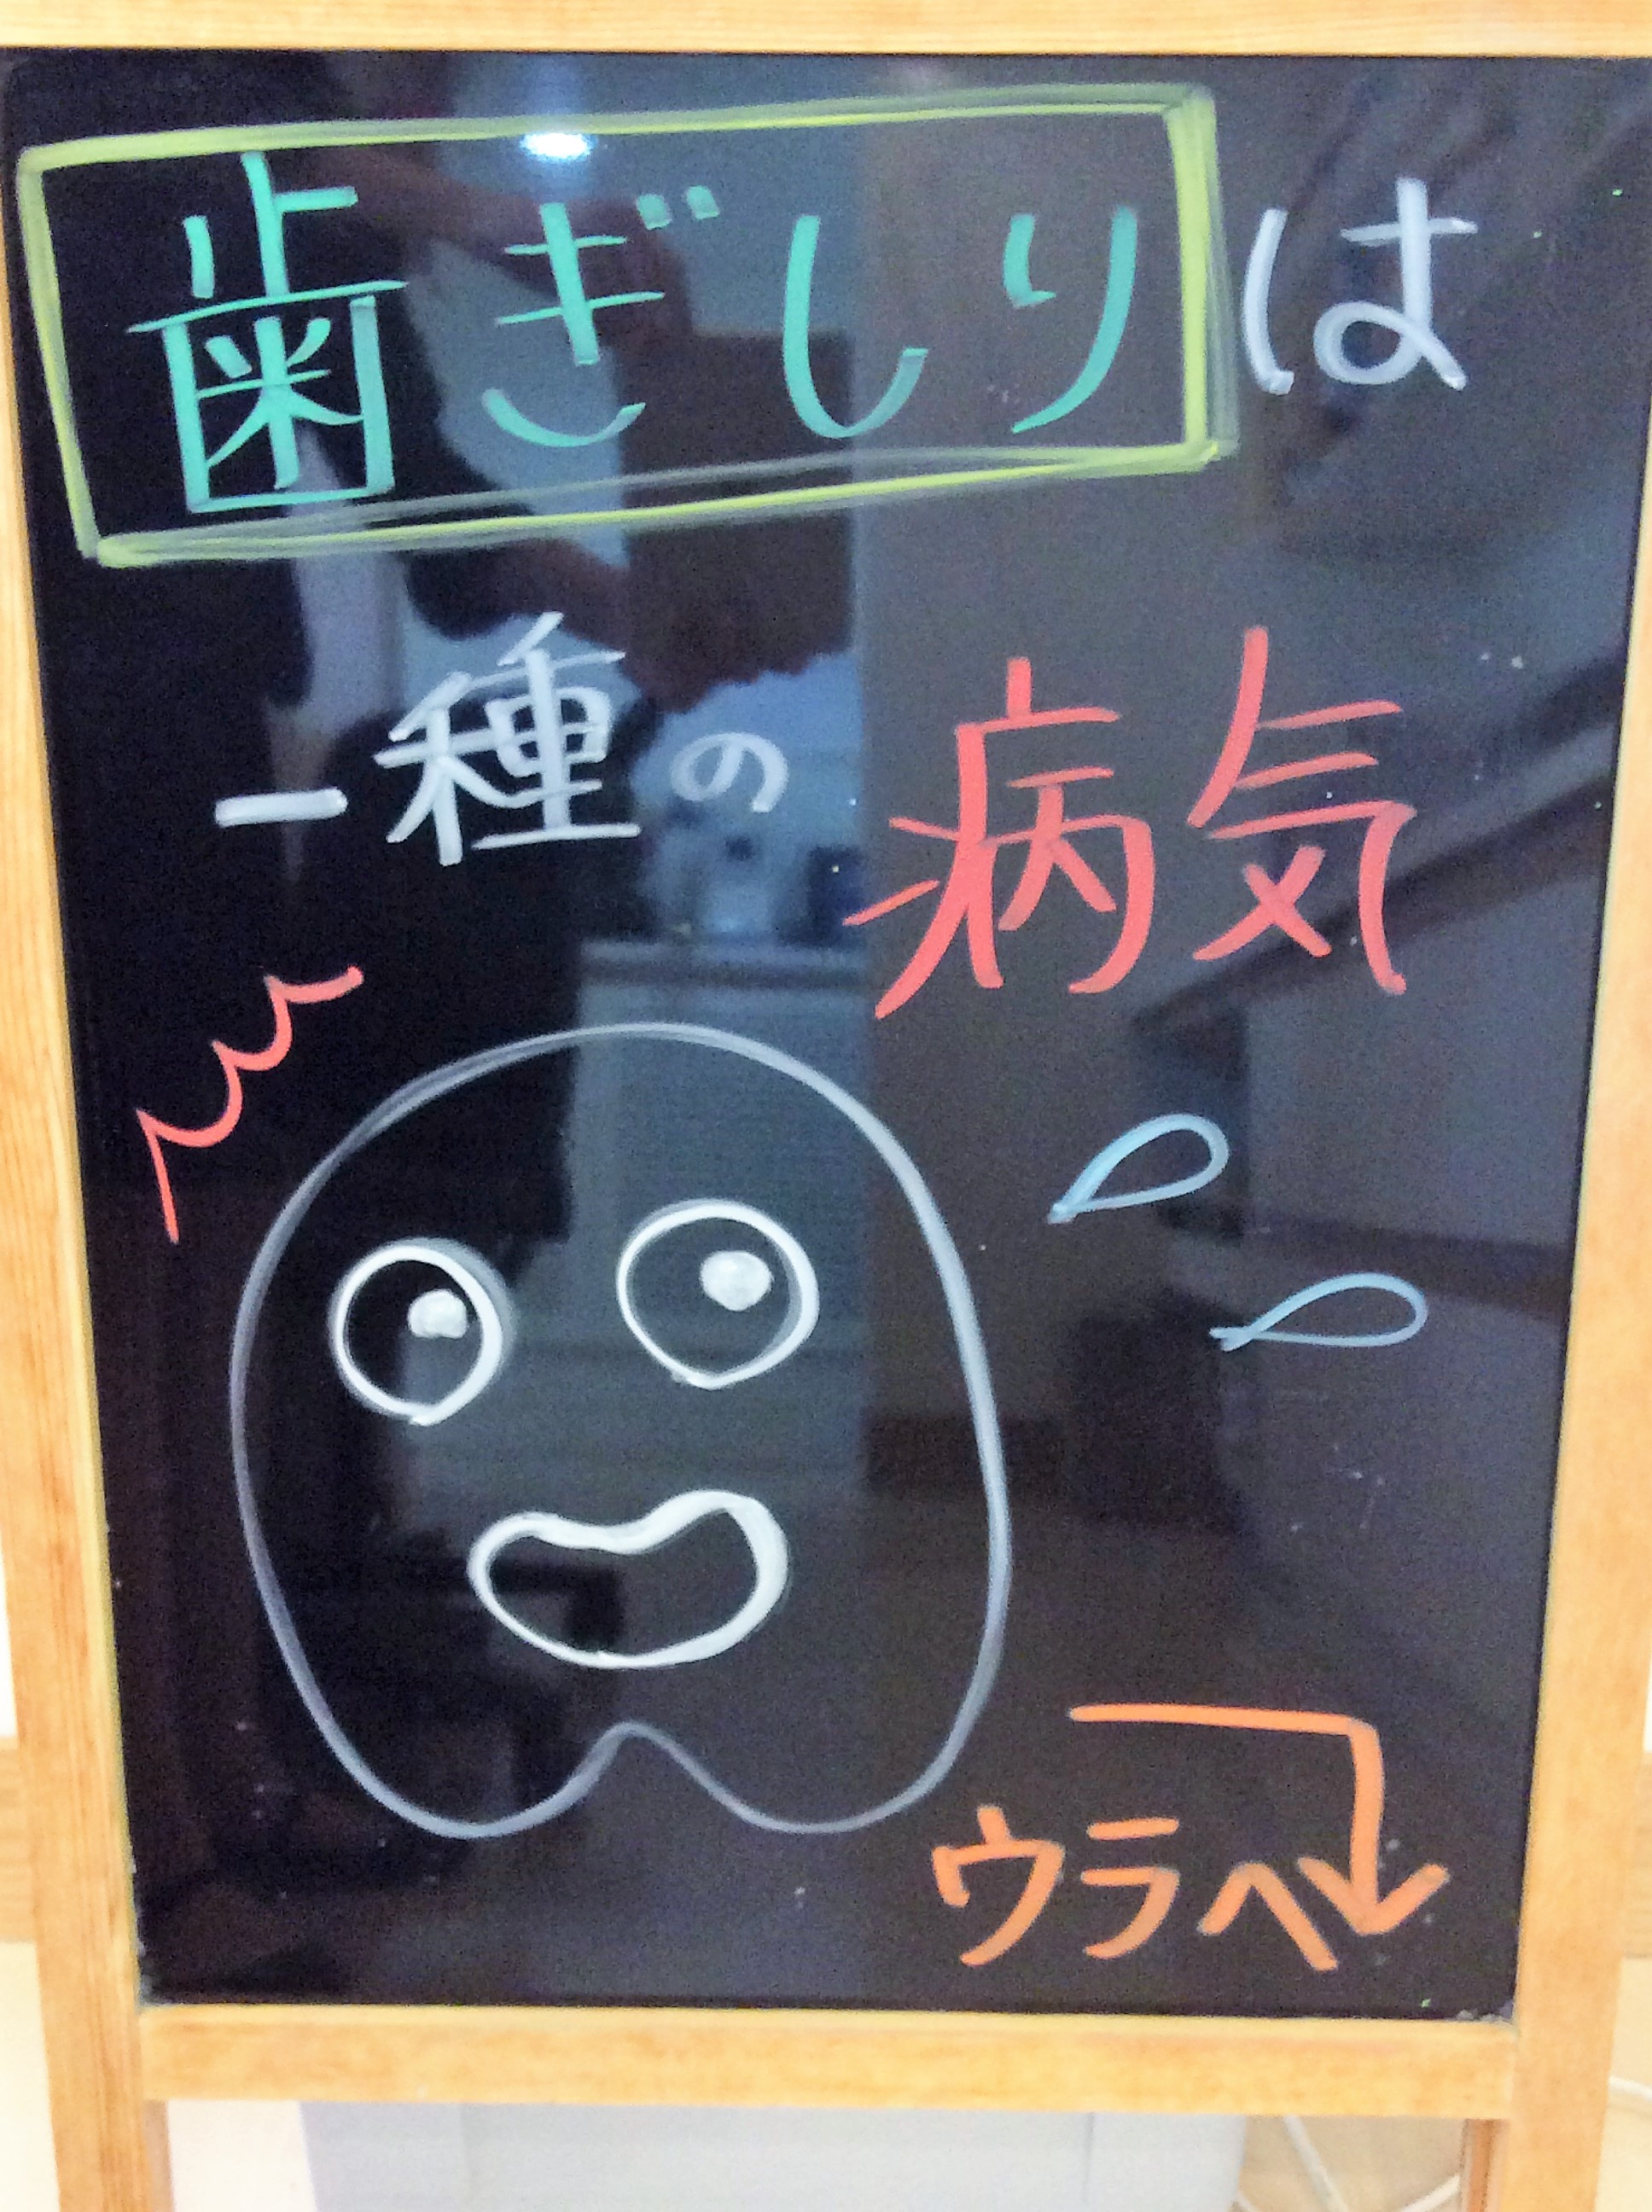 歯ぎしりは
一種の病気
ウラへ